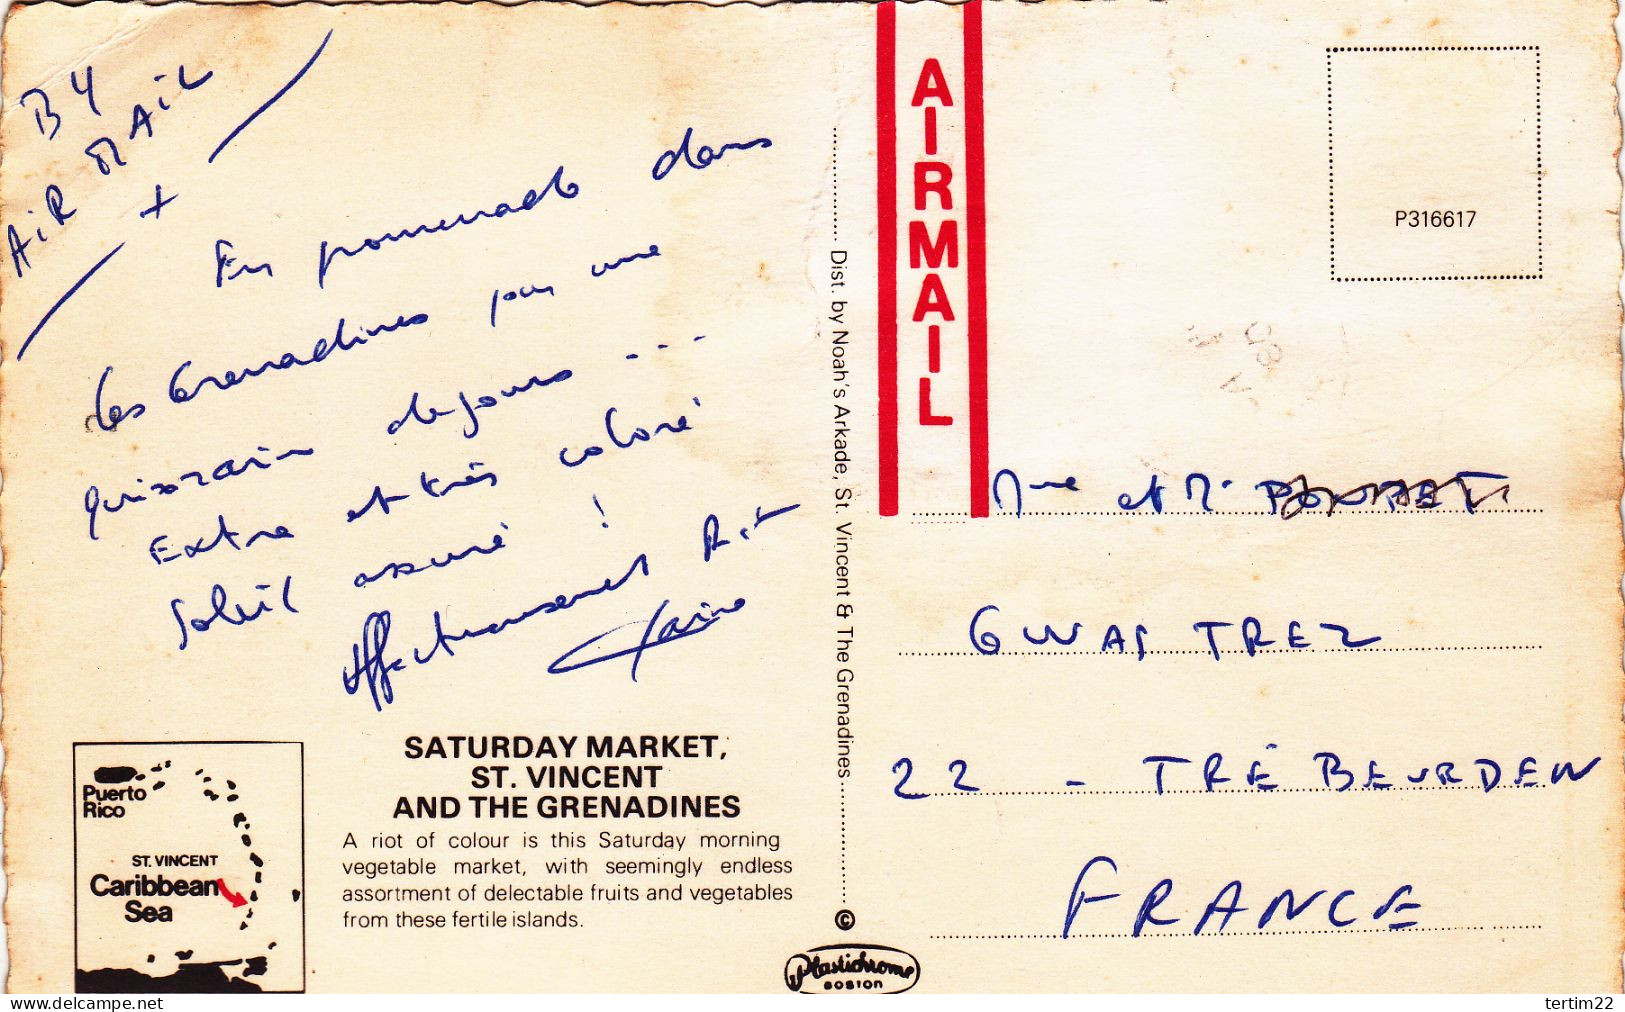 BY
AiR MAiL
+
En promenade dans
les Grenadines pour une
quinzaine de jours ...
Extra et très coloré
Soleil assuré !
Affectueusement
AIRMAIL
P316617
Dist. by Noah's Arkade, St. Vincent & The Grenadines
©
Plastichrome
BOSTON
Mme et Mr
GWAS TREZ
22 - TRÉBEURDEN
FRANCE
SATURDAY MARKET,
ST. VINCENT
AND THE GRENADINES
A riot of colour is this Saturday morning
vegetable market, with seemingly endless
assortment of delectable fruits and vegetables
from these fertile islands.
Puerto
Rico
ST. VINCENT
Caribbean
Sea
www.delcampe.net
tertim22